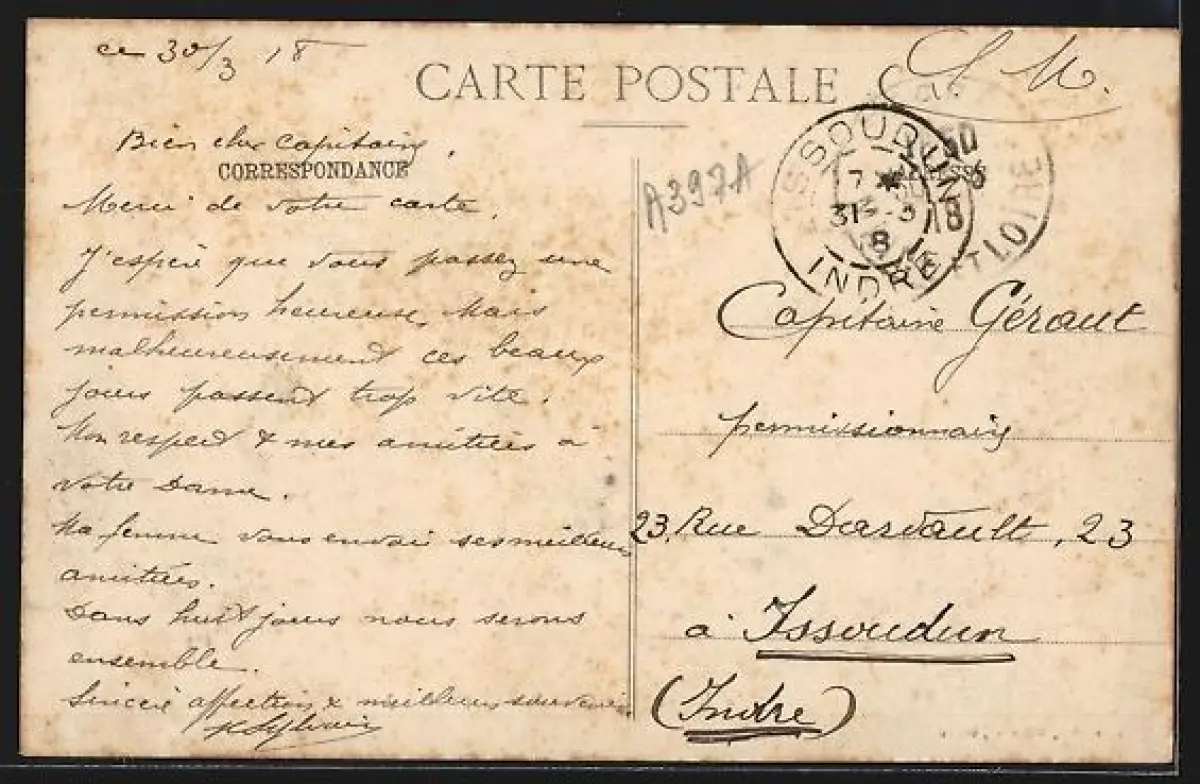 ce 30/3 18
CARTE POSTALE
S. M.
Bien cher Capitaine,
CORRESPONDANCE
Merci de votre carte.
J'espère que vous passez une
permission heureuse, Mais
malheureusement ces beaux
jours passent trop vite.
Mon respect & mes amitiés à
votre Dame.
Ma femme vous envoie ses meilleures
amitiés.
Dans huit jours nous serons
ensemble.
Sincère affection & meilleurs souvenirs
A397A
ISSOUDUN
7
31 - 3
18
INDRE
ET LOIRE
Capitaine Géraut
permissionnaire
23, Rue Darvault, 23
à Issoudun
(Indre)